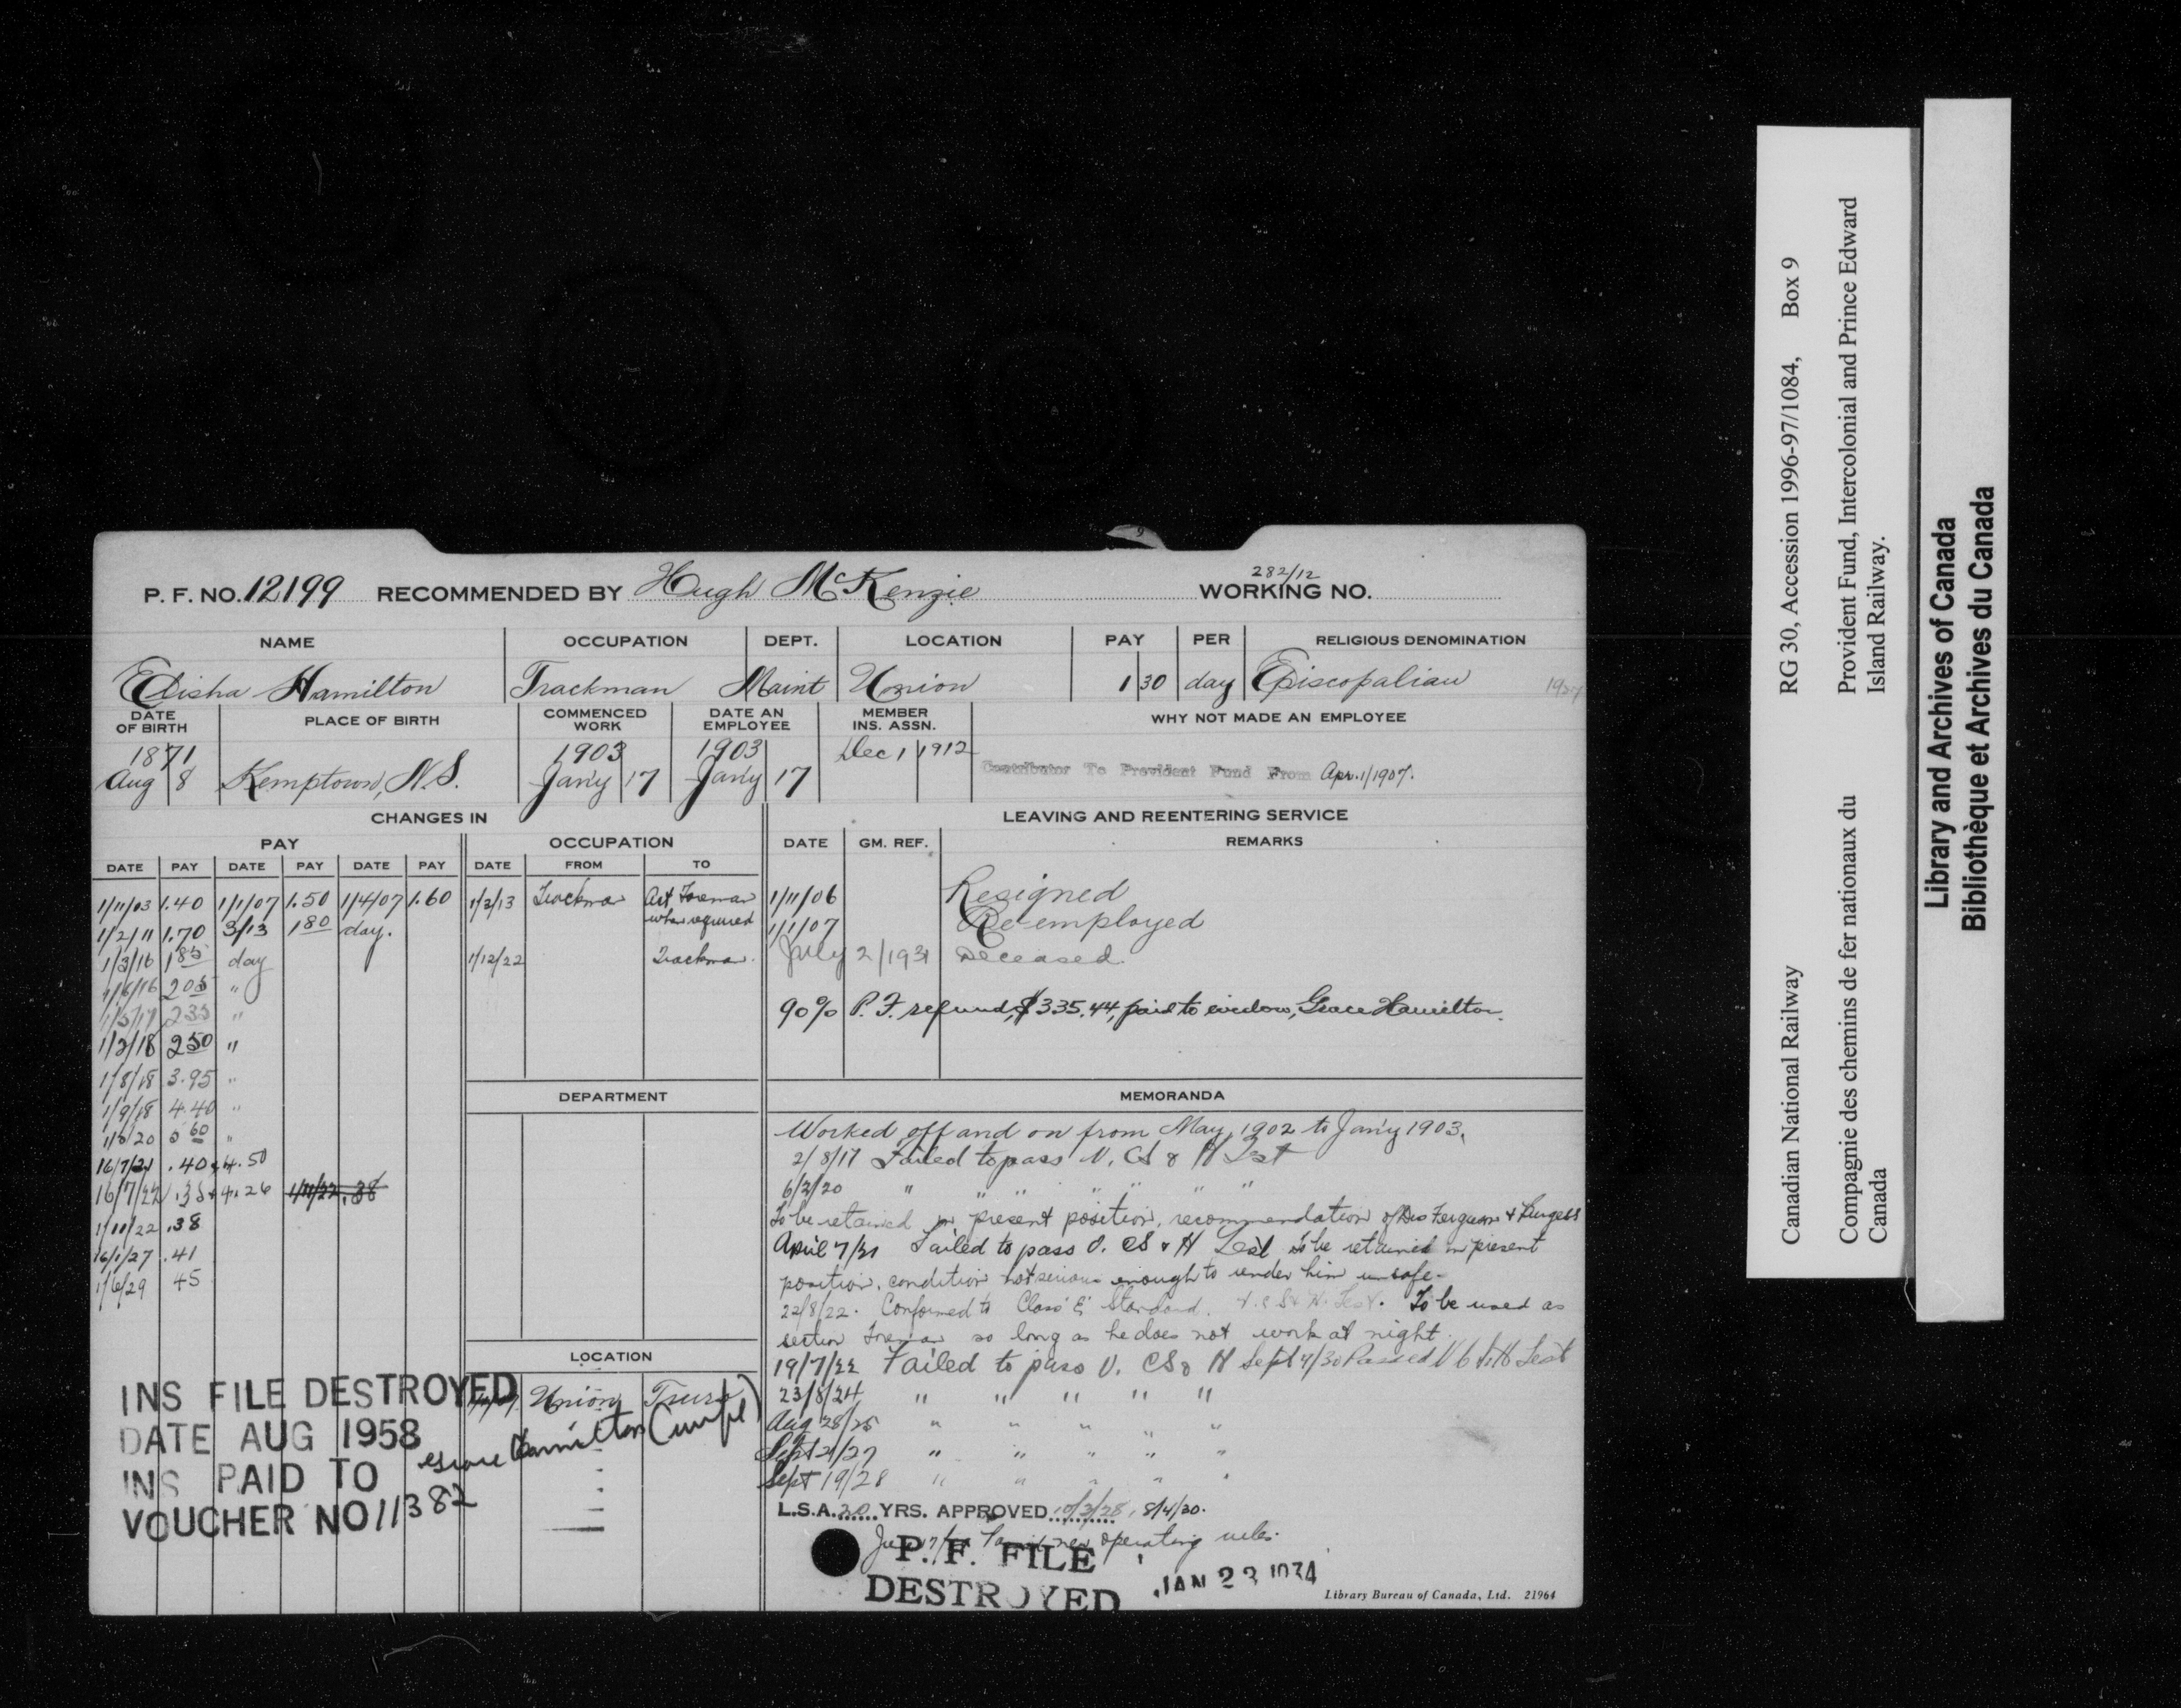 P. F. NO. 12199 RECOMMENDED BY Hugh McKenzie WORKING NO. 282/12
NAME OCCUPATION DEPT. LOCATION PAY PER RELIGIOUS DENOMINATION
Elisha Hamilton Trackman Maint Union 1 30 day Episcopalian
DATE OF BIRTH PLACE OF BIRTH COMMENCED WORK DATE AN EMPLOYEE MEMBER INS. ASSN. WHY NOT MADE AN EMPLOYEE
1871 1903 1903 Dec 1 1912
Aug 8 Kemptown, N.S. Jan'y 17 Jan'y 17 Contributor To Provident Fund From Apr. 1/1907.
CHANGES IN
PAY
DATE PAY DATE PAY DATE PAY
1/11/03 1.40 1/1/07 1.50 1/4/07 1.60
1/2/11 1.70 3/13 1 80 day.
1/3/16 1 85 day
1/6/16 2 05 "
1/5/17 2 35 "
1/2/18 2 50 "
1/8/18 3.95 "
1/9/18 4.40 "
60 "
16/7/21 .40 4.50
16/7/22 .35 4.26 1/11/22 .38
1/10/22 .38
16/1/27 .41
1/6/29 45
OCCUPATION
DATE FROM TO
1/2/13 Trackman Act Foreman
when required
1/12/22 Trackman.
DEPARTMENT
LOCATION
Union Truro
LEAVING AND REENTERING SERVICE
DATE GM. REF. REMARKS
1/11/06 Resigned
1/1/07 Re-employed
July 2/1931 Deceased.
90% P. F. refund, $335.44, paid to widow, Grace Hamilton.
MEMORANDA
Worked off and on from May, 1902 to Jan'y 1903.
2/8/17 Failed to pass V. CS & H Test
6/2/20 " " " " " " "
To be retained in present position, recommendation of Drs Ferguson & Burgess
April 7/21 Failed to pass V. CS & H Test To be retained in present
position, condition not serious enough to render him unsafe-
22/8/22. Conformed to Class E Standard. V. C S & H. Test. To be used as
section Foreman so long as he does not work at night.
19/7/22 Failed to pass V. CS & H Sept 4/30 Passed Test
23/8/24 " " " " "
Aug 28/25 " " " " "
Sept 21/27 " " " " "
Sept 19/28 " " " " "
L.S.A. 20 YRS. APPROVED 10/3/28, 8/4/30.
new operating rules.
P. F. FILE
DESTROYED JAN 23 1934
Library Bureau of Canada, Ltd. 21964
INS FILE DESTROYED
DATE AUG 1958
INS PAID TO Grace Hamilton
VOUCHER NO 11382
Canadian National Railway RG 30, Accession 1996-97/1084, Box 9
Compagnie des chemins de fer nationaux du Canada
Provident Fund, Intercolonial and Prince Edward Island Railway.
Library and Archives of Canada
Bibliothèque et Archives du Canada